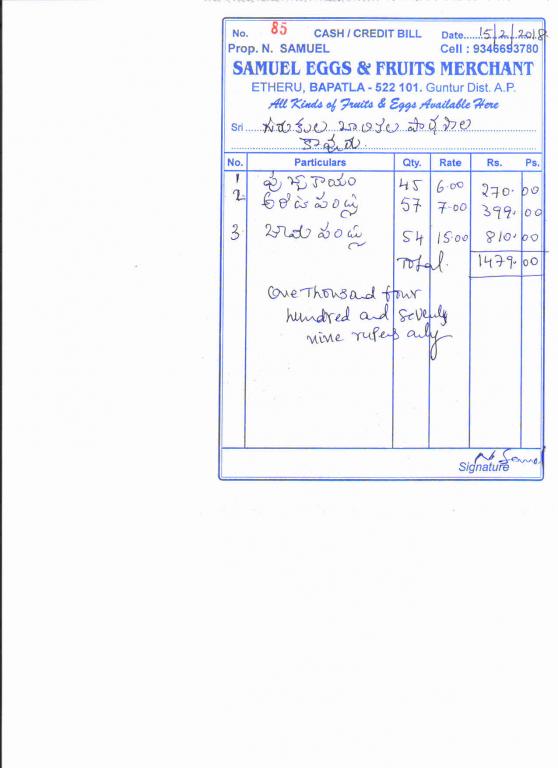 No. 85 CASH / CREDIT BILL Date......15/2/2018
Prop. N. SAMUEL Cell : 9346693780
SAMUEL EGGS & FRUITS MERCHANT
ETHERU, BAPATLA - 522 101. Guntur Dist. A.P.
All Kinds of Fruits & Eggs Available Here
Sri.....గురుకుల బాలికల పాఠశాల
No. Particulars Qty. Rate Rs. Ps.
1 పుచ్చకాయం 45 6.00 270. 00
2 అరటి పండ్లు 57 7-00 399. 00
3. జామ పండ్లు 54 15.00 810. 00
Total. 1479. 00
One Thousand four
hundred and seventy
nine rupees only
Signature